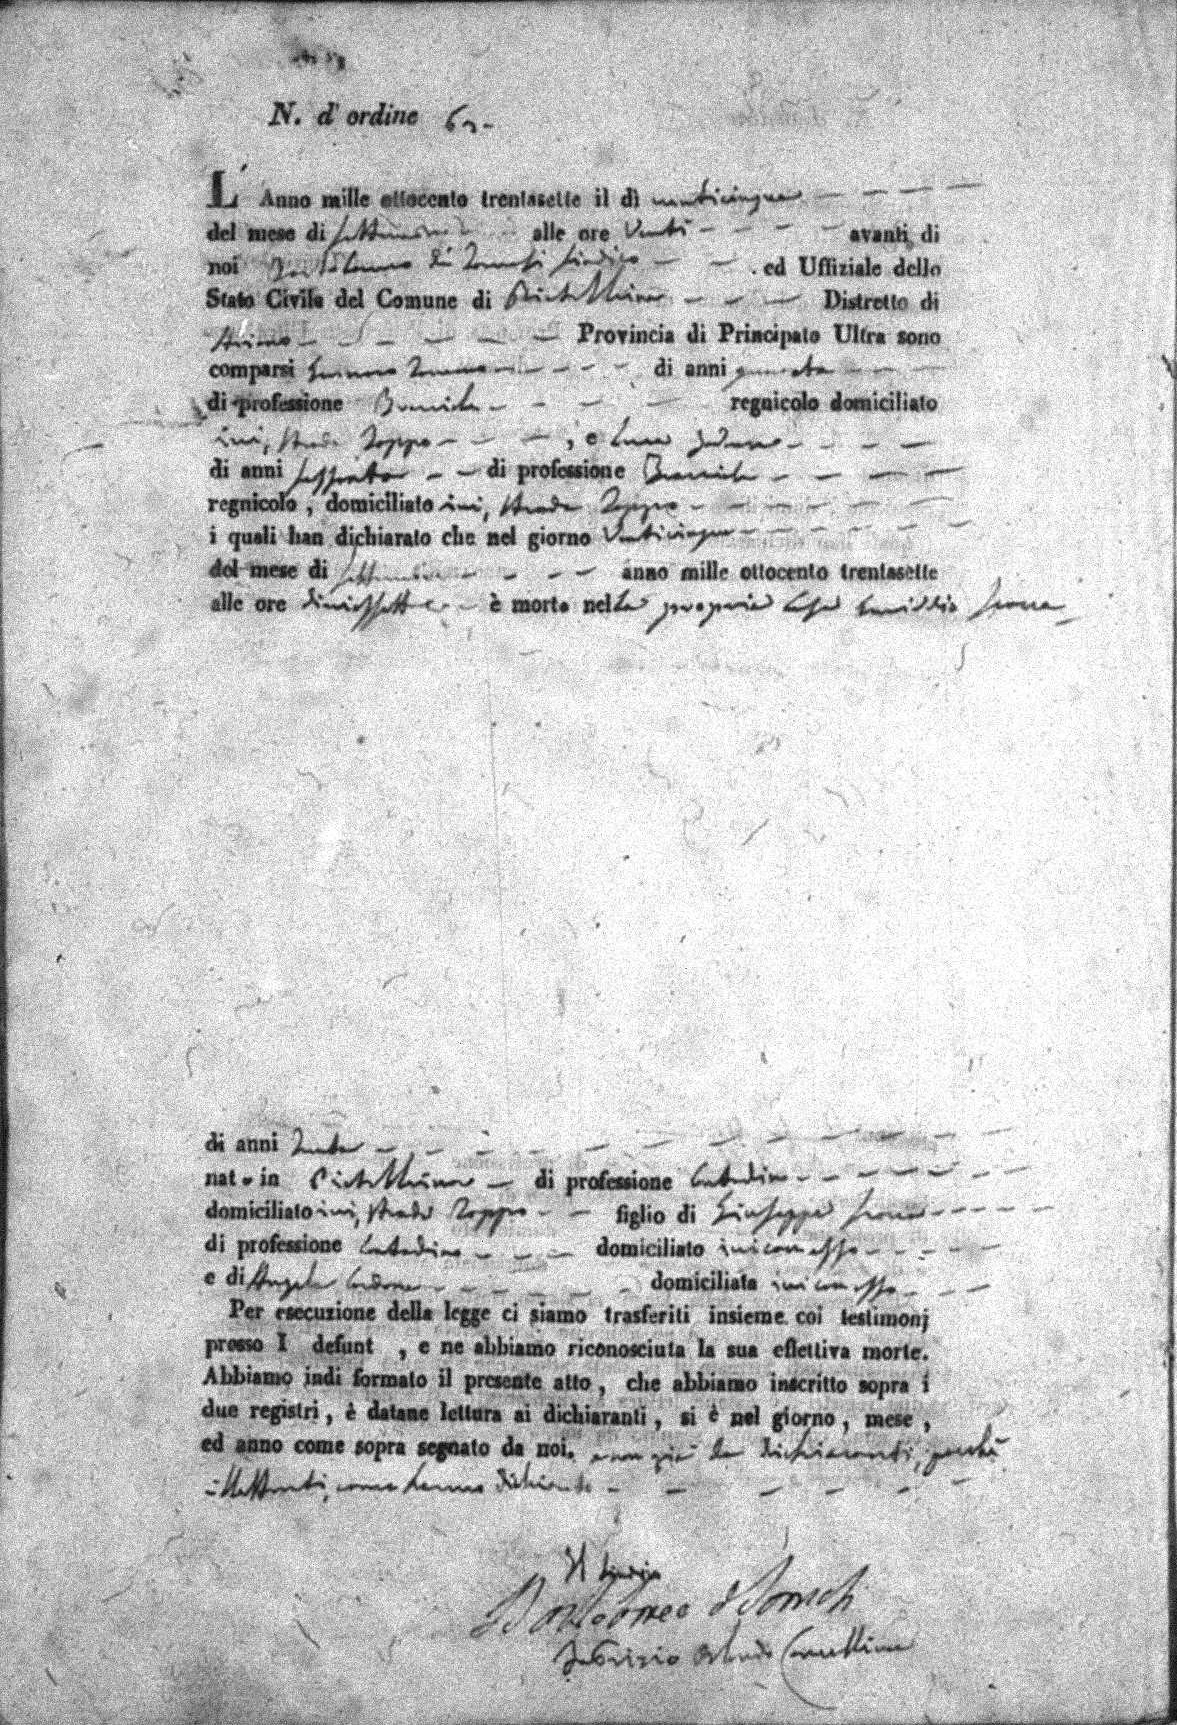 N. d' ordine
L' Anno mille ottocento trentasette il dì venticinque
del mese di Settembre alle ore Venti avanti di
noi Bartolomeo de Sindico ed Uffiziale dello
Stato Civile del Comune di Distretto di
Ariano Provincia di Principato Ultra sono
comparsi di anni quaranta
di professione Bracciale regnicolo domiciliato
ivi, strada Zoppo , e Luca
di anni sessanta di professione Bracciale
regnicolo, domiciliato ivi, strada Zoppo
i quali han dichiarato che nel giorno Venticinque
del mese di Settembre anno mille ottocento trentasette
alle ore diciassette è morto nella propria casa
di anni
nato in di professione Contadino
domiciliato ivi, strada Zoppo figlio di Giuseppe
di professione Contadino domiciliato ivi come sopra
e di Angela Cardone domiciliata ivi come sopra
Per esecuzione della legge ci siamo trasferiti insieme coi testimonj
presso l defunt , e ne abbiamo riconosciuta la sua effettiva morte.
Abbiamo indi formato il presente atto, che abbiamo inscritto sopra i
due registri, è datane lettura ai dichiaranti, si è nel giorno, mese,
ed anno come sopra segnato da noi. e non già da dichiaranti, perchè
illetterati, come hanno dichiarato
Il Sindico
Bartolomeo
Fabrizio Orlando